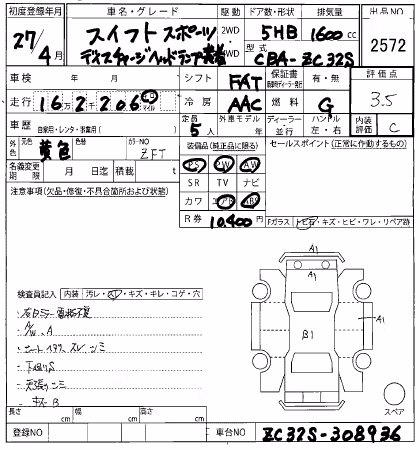 初度登録年月 車名・グレード 駆動 ドア数・形状 排気量 出品NO
27/4月 スイフト スポーツ 2WD 4WD 5HB 1600cc 2572
ディスチャージヘッドランプ装着 型式 CBA-ZC32S
車検 年 月 シフト FAT 保証書 有・無 評価点
走行 16万2千206 km マイル 冷房 AAC 燃料 G 3.5
車歴 自家用・レンタ・事業用( ) 定員 5人 外車モデル 年 ディーラー 並行 ハンドル 左・右 内装評価 C
外色 元色 黄色 色替 カラーNO ZFT 装備品(純正品に限る) セールスポイント(正常に作動するもの)
名義変更期限 月 日迄 積載 t PS PW SW
注意事項(欠品・修復・不具合箇所および状態) SR TV ナビ
カワ エアB ABS
R券 10,400円 Fガラス トビ石・キズ・ヒビ・ワレ・リペア跡
A1
検査員記入 内装 汚レ・スレ・キズ・キレ・コゲ・穴
A1
右ロミラー電格不良
A/W.A B1
シート スレ、シミ
下廻りS
天張りシミ
キズB
長さ cm 幅 cm 高さ cm A1 スペア
登録NO 車台NO ZC32S-308936